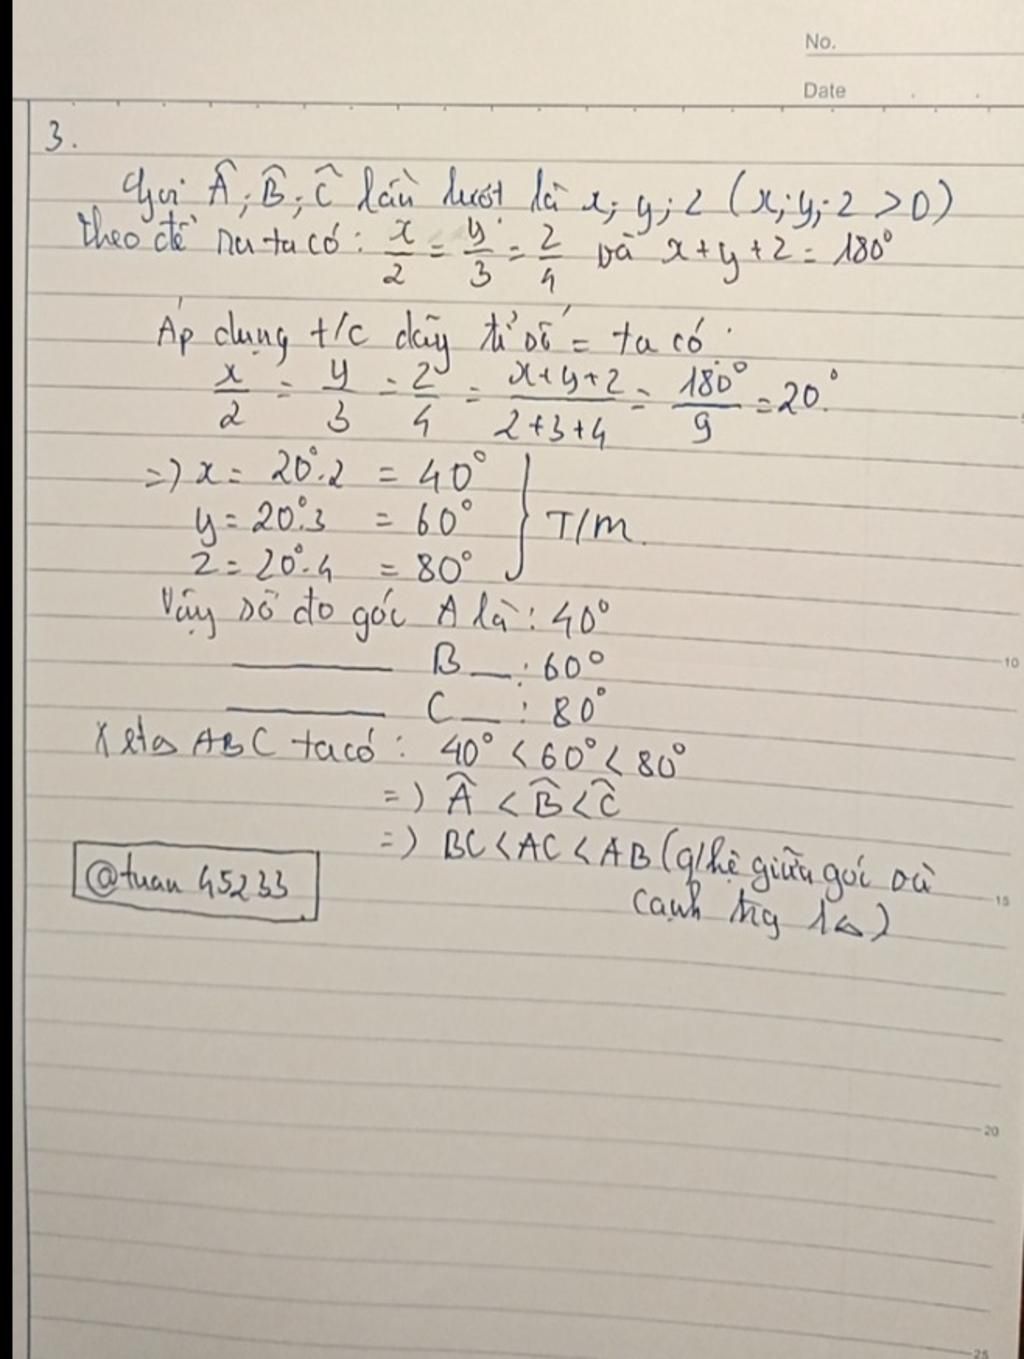 No.
Date
3.
Gọi Â; B̂; Ĉ lần lượt là x; y; z (x; y; z > 0)
theo đề ra ta có: x/2 = y/3 = z/4 và x + y + z = 180°
Áp dụng t/c dãy tỉ số = ta có:
x/2 = y/3 = z/4 = (x+y+z)/(2+3+4) = 180°/9 = 20°.
=) x = 20°.2 = 40°
y = 20°.3 = 60° } T/m.
z = 20°.4 = 80°
Vậy số đo góc A là: 40°
——— B — : 60°
——— C — : 80°
Xét Δ ABC ta có: 40° < 60° < 80°
=) Â < B̂ < Ĉ
=) BC < AC < AB (q/hệ giữa góc và
cạnh trg 1Δ)
@tuan 45233
10
15
20
25